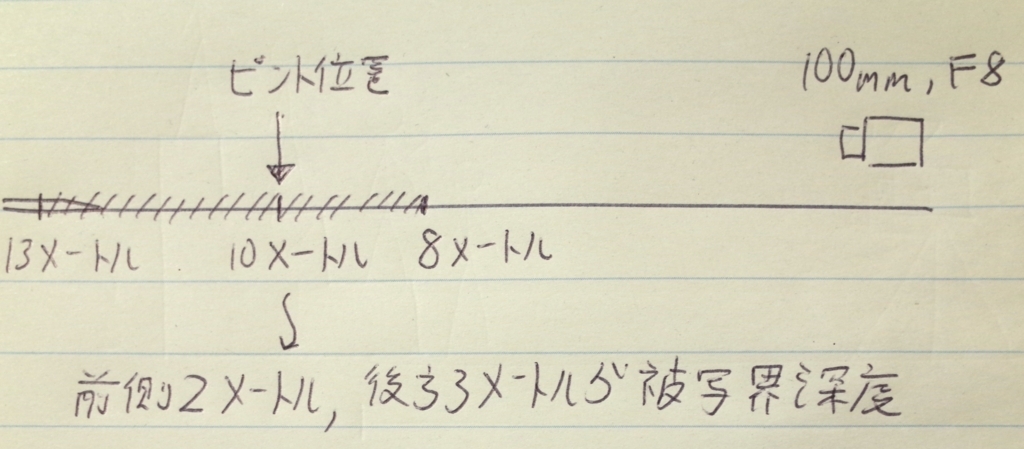 ピント位置
100mm, F8
13メートル 10メートル 8メートル
前側2メートル, 後ろ3メートルが被写界深度